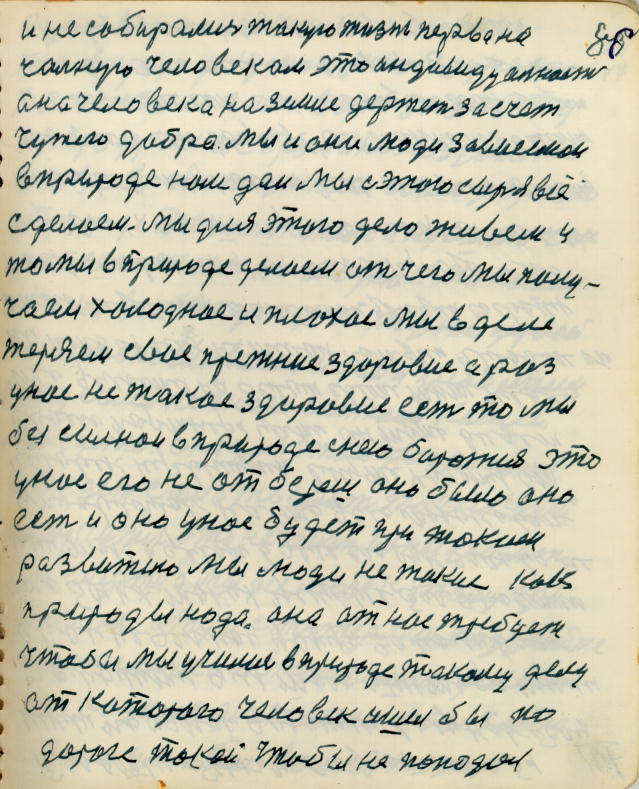 и не собирались такую жизнь первона 86
чалную человекам это андивидуалность
она человека на земле держет за счет
чужего добра. мы и они люди зависемои
в природе нам даи мы с этого сыря всё
сделаем. мы для этого дело живем и
то мы в природе делаем от чего мы полу-
чаем холодное и плохое мы в деле
теряем свое прежние здоровие а раз
унас не такое здоровие ест то мы
бессилнои в природе снею боротся это
унас его не от береш оно было оно
ест и оно унас будет при таком
развитию мы люди не такие как
природы нада. она от нас требует
чтобы мы училис в природе такому делу
от которого человек ишел бы по
дароге такой чтобы не попадал